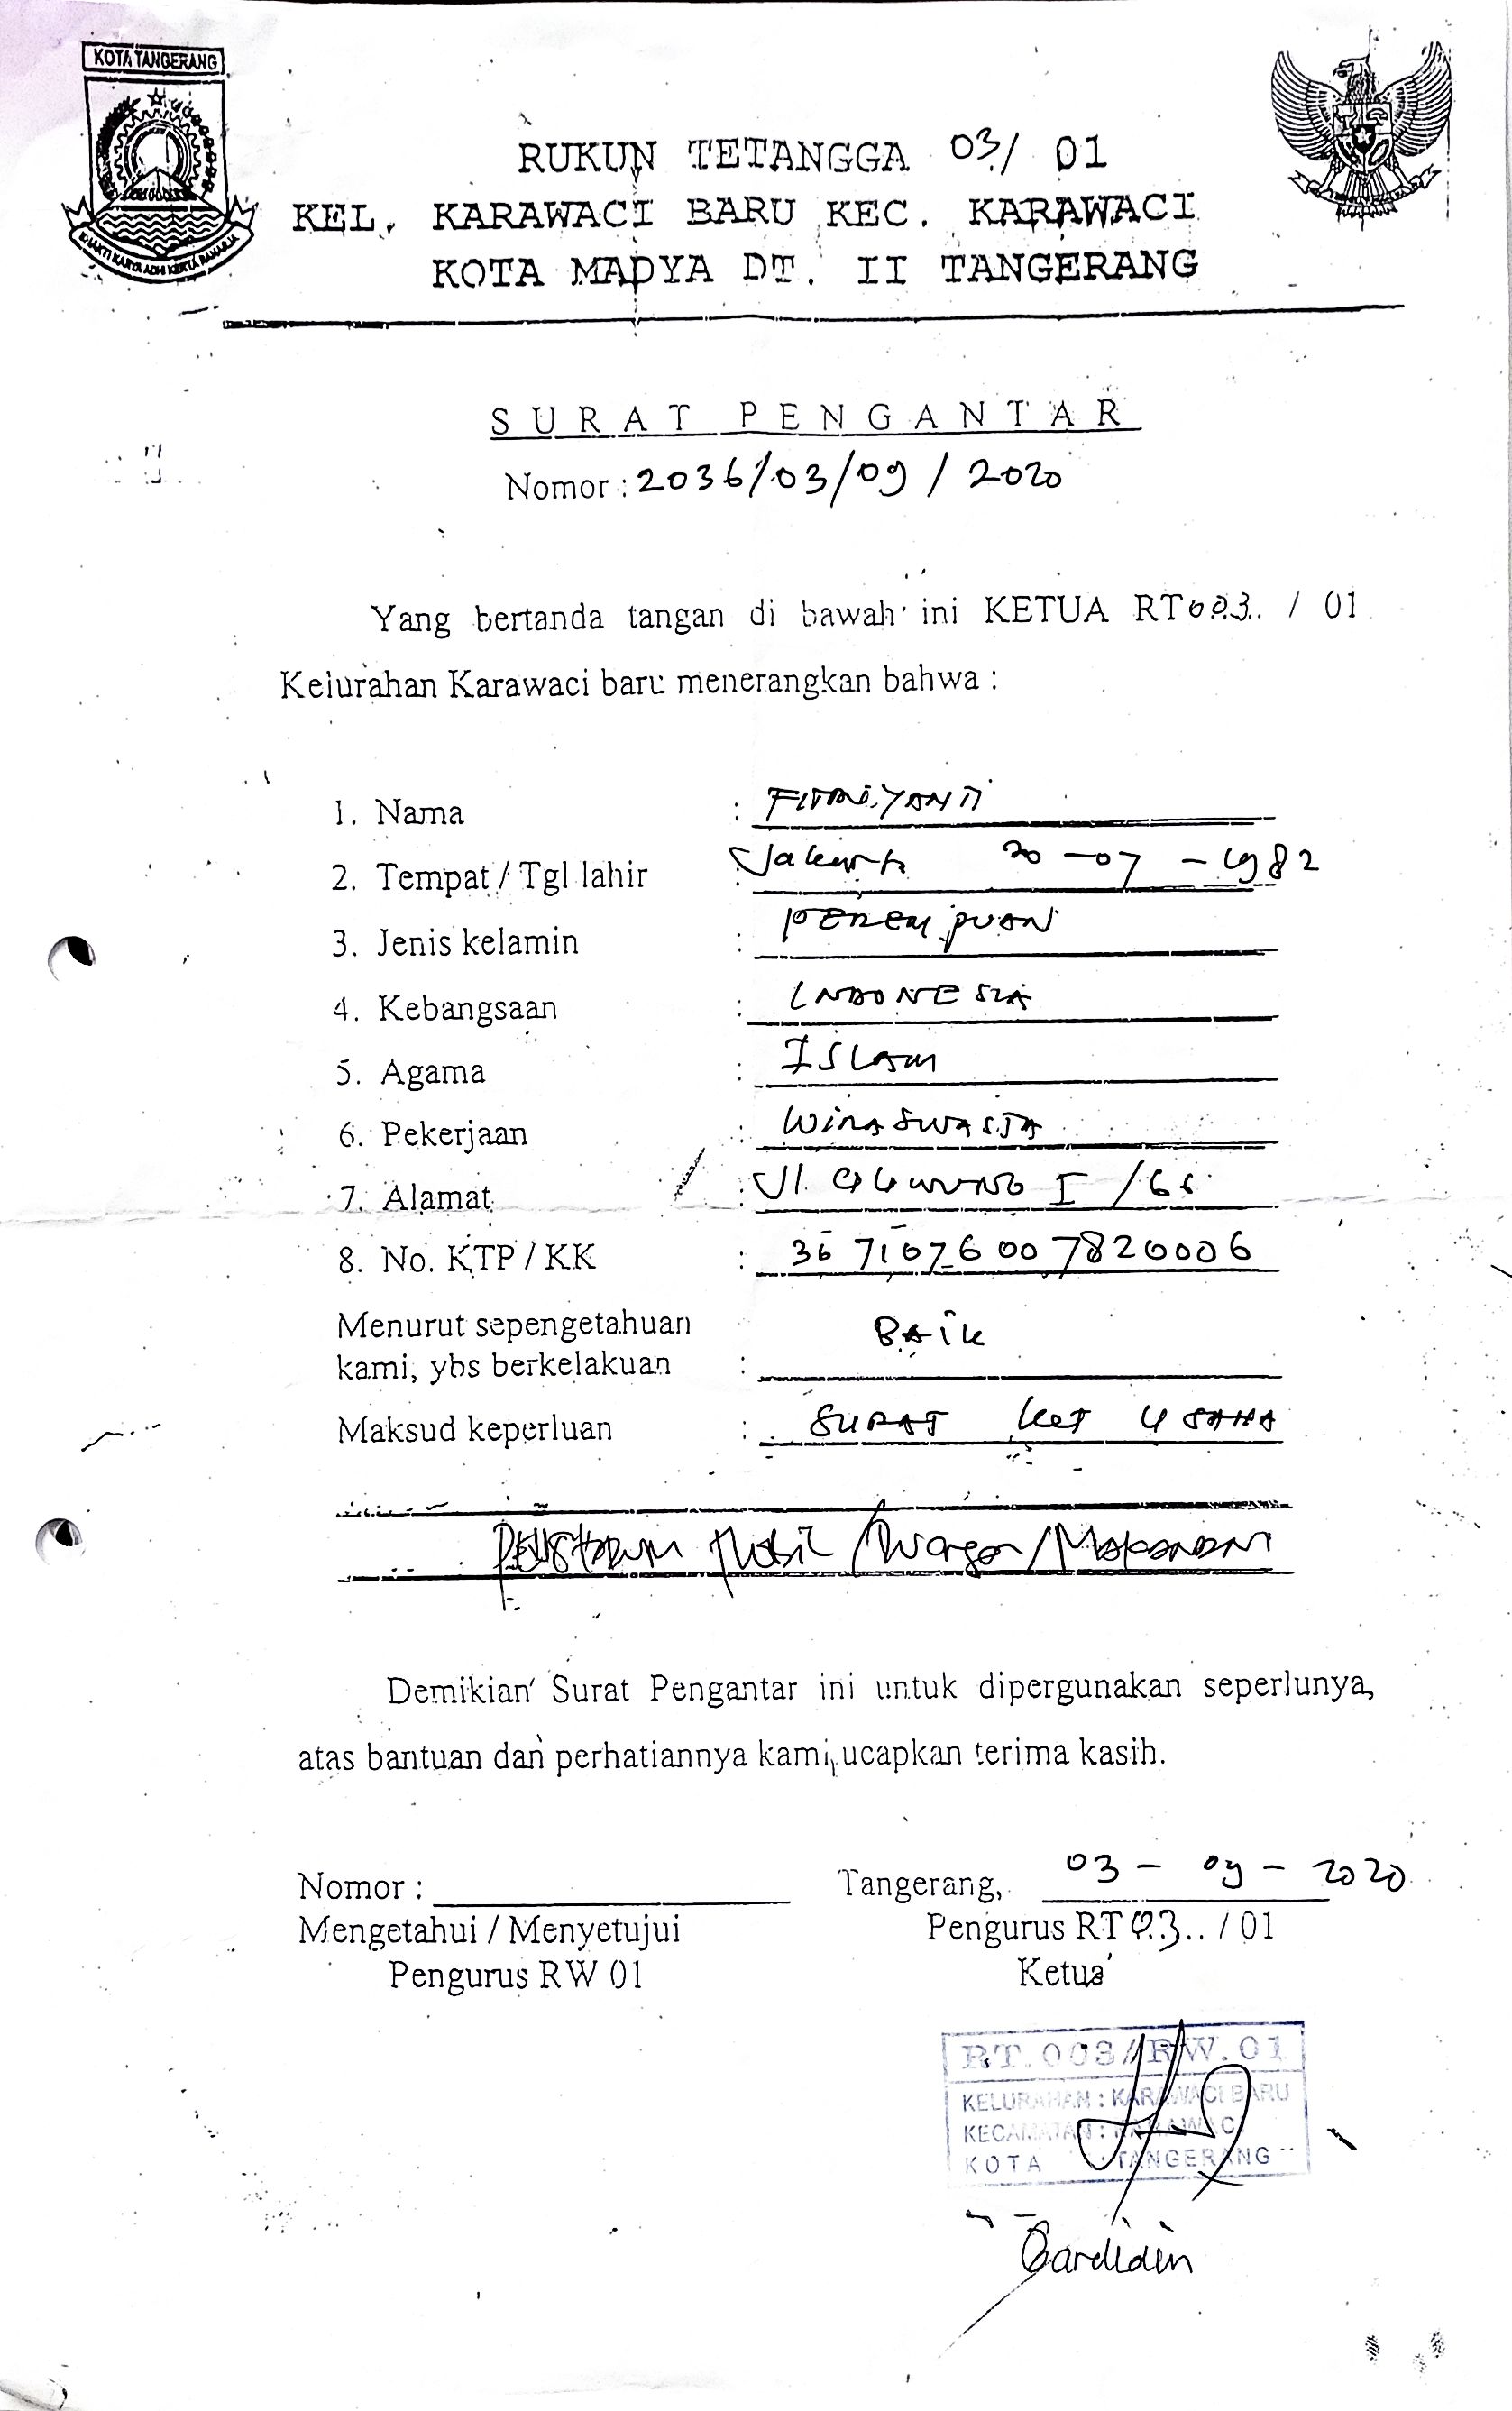 KOTA TANGERANG
BHAKTI KARYA ADHI KERTA RAHARJA
RUKUN TETANGGA 03/ 01
KEL. KARAWACI BARU KEC. KARAWACI
KOTA MADYA DT. II TANGERANG
SURAT PENGANTAR
Nomor : 2036/03/09/2020
Yang bertanda tangan di bawah ini KETUA RT 003.. / 01
Kelurahan Karawaci baru menerangkan bahwa :
1. Nama : FITRIYANTI
2. Tempat / Tgl lahir : Jakarta 20-07-1982
3. Jenis kelamin : PEREMPUAN
4. Kebangsaan : INDONESIA
5. Agama : ISLAM
6. Pekerjaan : WIRASWASTA
7. Alamat : Jl. I /66
8. No. KTP / KK : 3671076007820006
Menurut sepengetahuan
kami, ybs berkelakuan : BAIK
Maksud keperluan : SURAT KET USAHA
Mobil / Warga / Makanan
Demikian Surat Pengantar ini untuk dipergunakan seperlunya,
atas bantuan dan perhatiannya kami ucapkan terima kasih.
Nomor : Tangerang, 03-09-2020
Mengetahui / Menyetujui Pengurus RT 03.. / 01
Pengurus RW 01 Ketua
RT.003/RW.01
KELURAHAN : KARAWACI BARU
KECAMATAN : KARAWACI
KOTA : TANGERANG
Sardidin